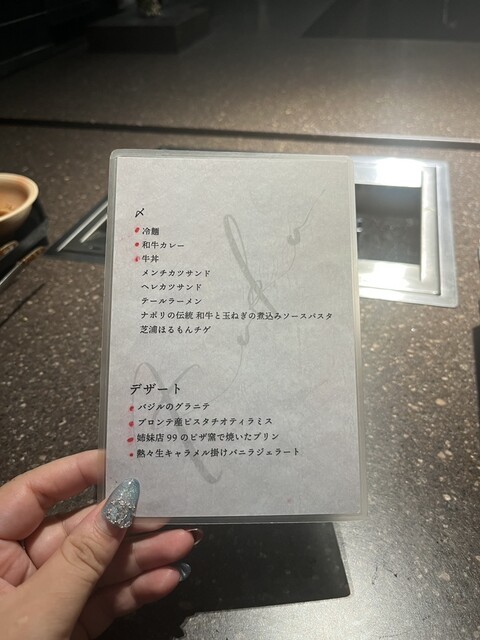 〆
冷麺
和牛カレー
牛丼
メンチカツサンド
ヘレカツサンド
テールラーメン
ナポリの伝統 和牛と玉ねぎの煮込みソースパスタ
芝浦ほるもんチゲ
デザート
バジルのグラニテ
ブロンテ産ピスタチオティラミス
姉妹店 99 のピザ窯で焼いたプリン
熱々生キャラメル掛けバニラジェラート